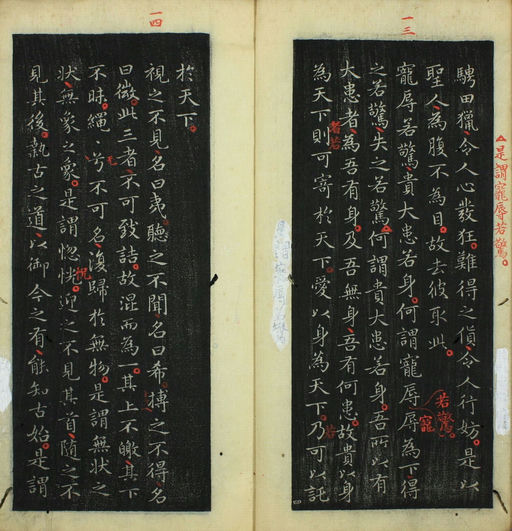 一三
是謂寵辱若驚
騁田獵令人心發狂難得之貨令人行妨是以
聖人為腹不為目故去彼取此
寵辱若驚貴大患若身何謂寵辱辱為下得
若驚
寵
之若驚失之若驚何謂貴大患若身吾所以有
大患者為吾有身及吾無身吾有何患故貴以身
者若
為天下則可寄於天下愛以身為天下乃可以託
若
一四
於天下
視之不見名曰夷聽之不聞名曰希摶之不得名
曰微此三者不可致詰故混而為一其上不皦其下
不昧繩兮不可名復歸於無物是謂無狀之
狀無象之象是謂惚恍迎之不見其首隨之不
見其後執古之道以御今之有能知古始是謂